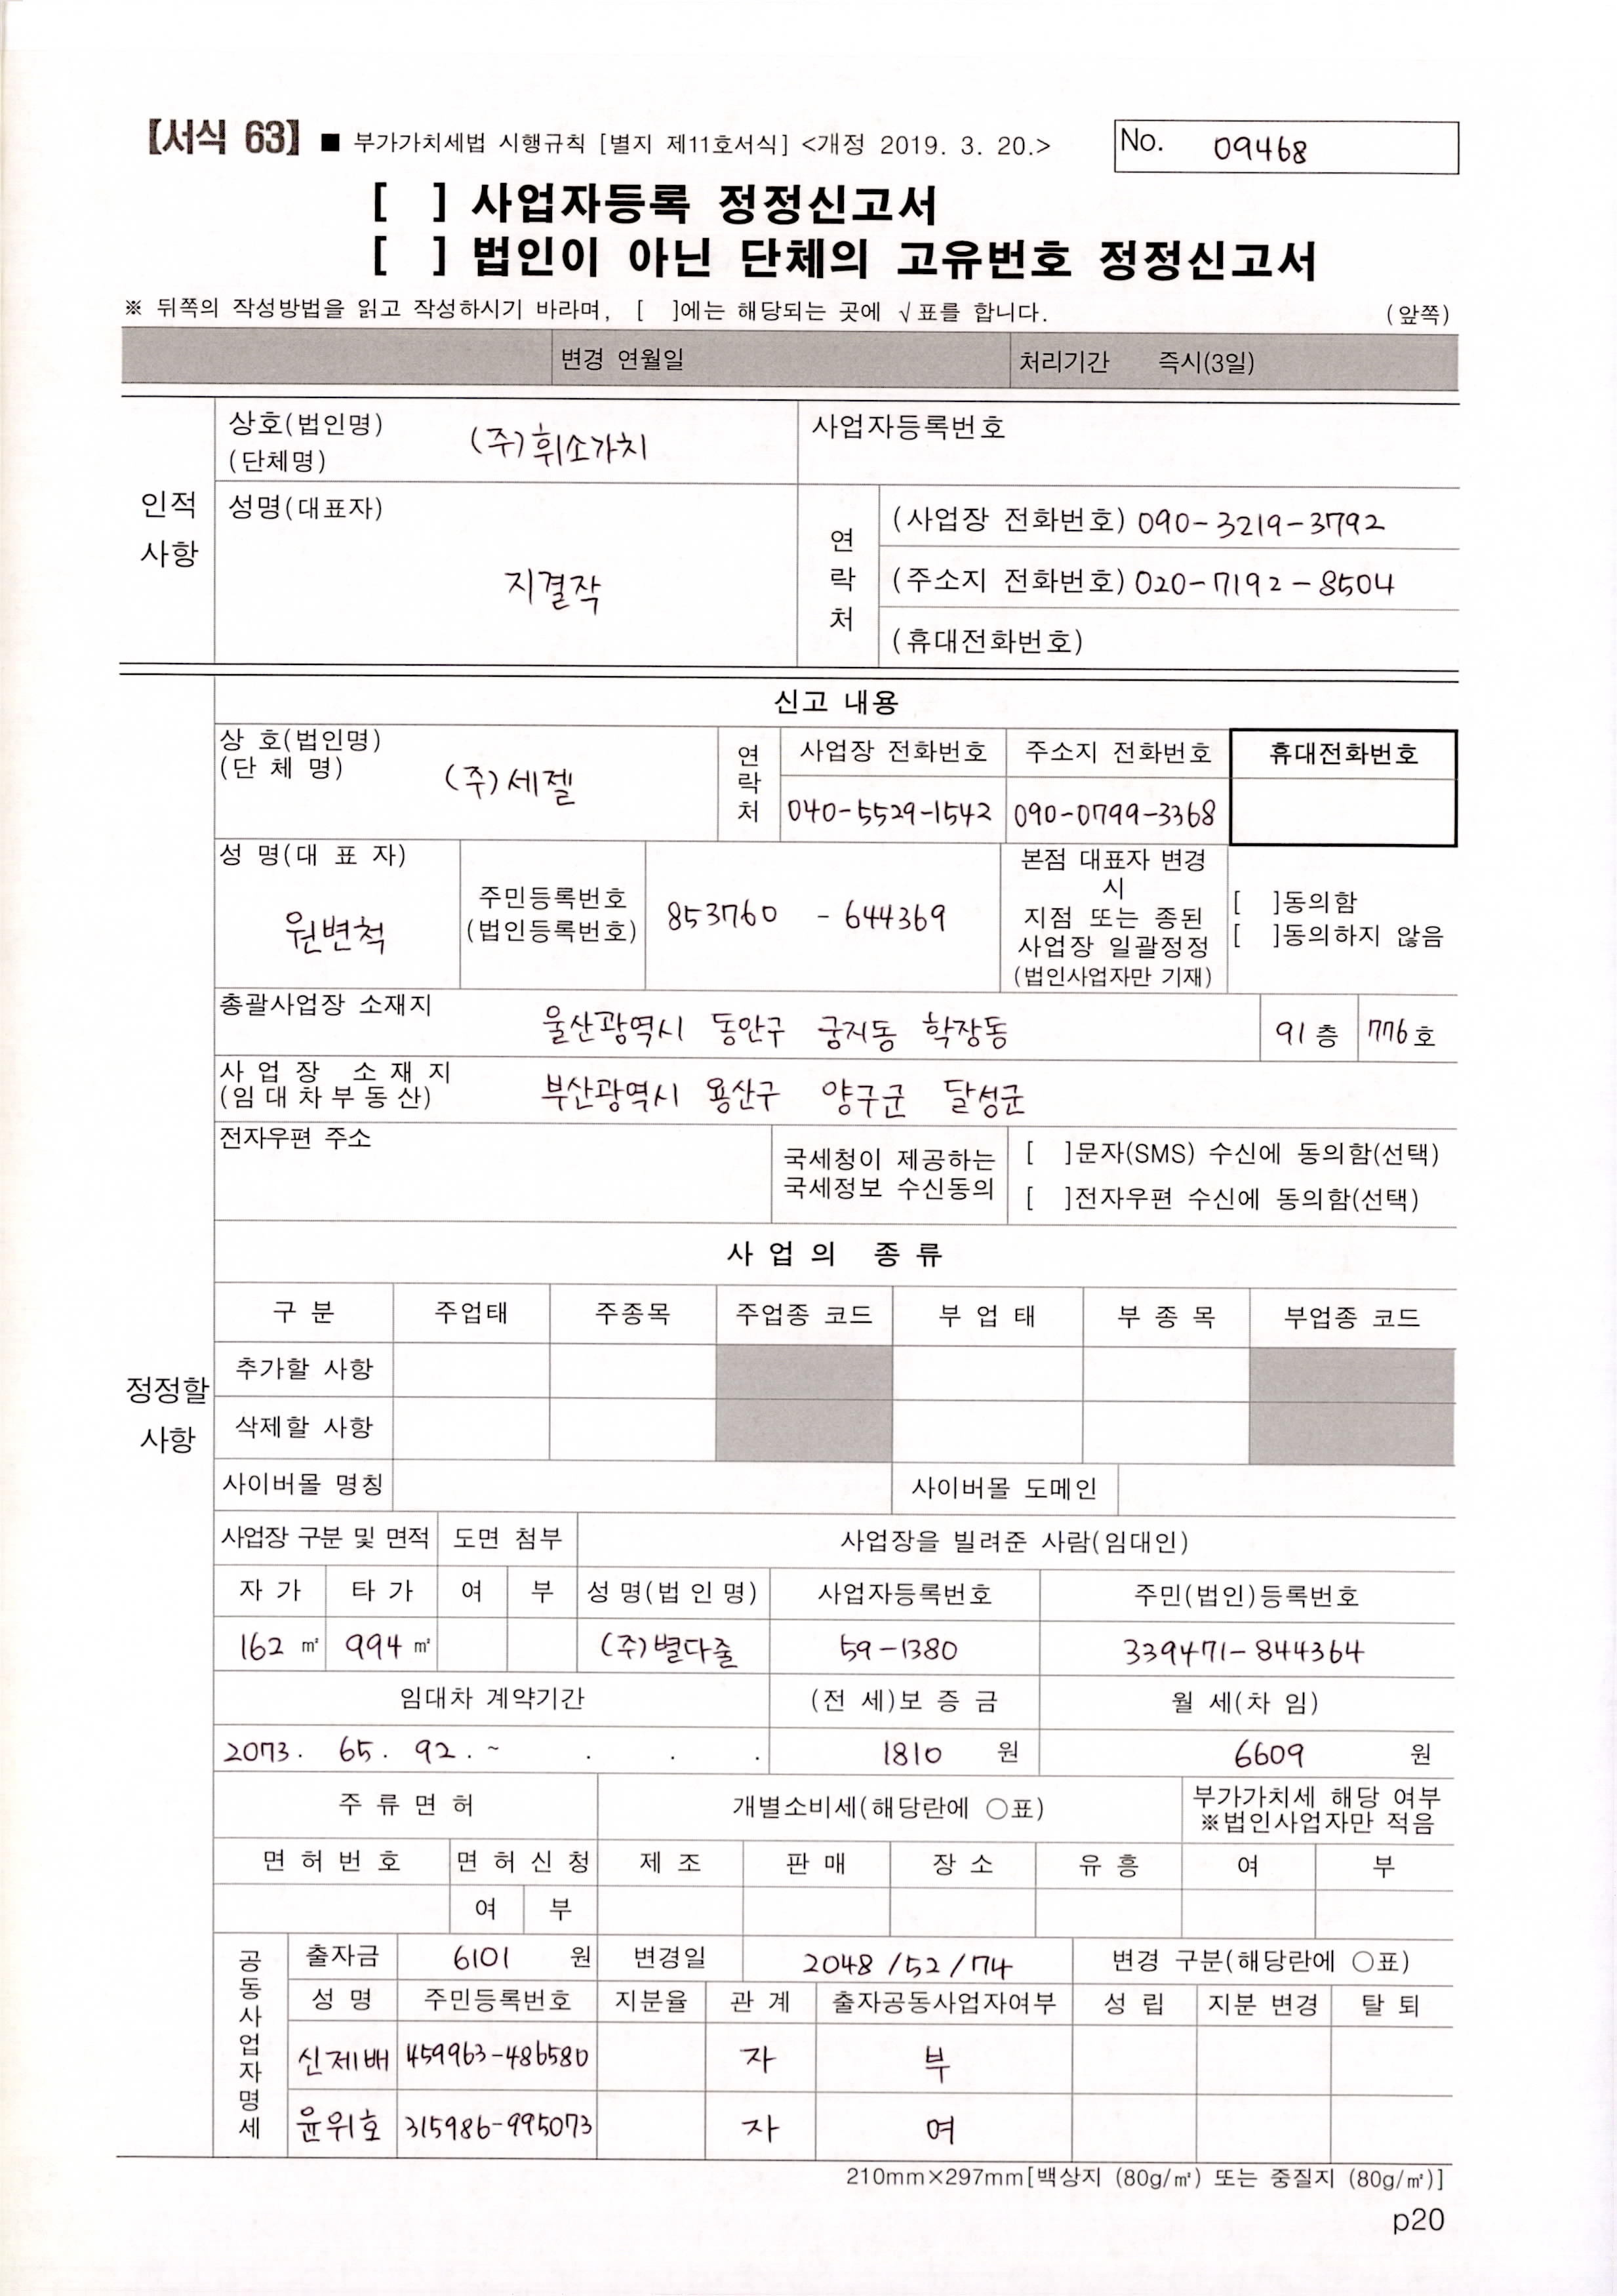 【서식 63】 ■ 부가가치세법 시행규칙 [별지 제11호서식] <개정 2019. 3. 20.> No. 09468
[ ] 사업자등록 정정신고서
[ ] 법인이 아닌 단체의 고유번호 정정신고서
※ 뒤쪽의 작성방법을 읽고 작성하시기 바라며, [ ]에는 해당되는 곳에 √표를 합니다. (앞쪽)
변경 연월일 처리기간 즉시(3일)
인적 사항
상호(법인명) (단체명) (주)휘소가치 사업자등록번호
성명(대표자) 지결작
연락처
(사업장 전화번호) 090-3219-3792
(주소지 전화번호) 020-7192-8504
(휴대전화번호)
정정할 사항
신고 내용
상 호(법인명) (단 체 명) (주)세젤
연락처 사업장 전화번호 주소지 전화번호 휴대전화번호
040-5529-1542 090-0799-3368
성 명(대 표 자) 원변척
주민등록번호 (법인등록번호) 853760 - 644369
본점 대표자 변경
시
지점 또는 종된
사업장 일괄정정
(법인사업자만 기재)
[ ]동의함
[ ]동의하지 않음
총괄사업장 소재지 울산광역시 동안구 궁지동 학장동 91 층 776 호
사 업 장 소 재 지 (임 대 차 부 동 산) 부산광역시 용산구 양구군 달성군
전자우편 주소
국세청이 제공하는
국세정보 수신동의
[ ]문자(SMS) 수신에 동의함(선택)
[ ]전자우편 수신에 동의함(선택)
사 업 의 종 류
구 분 주업태 주종목 주업종 코드 부 업 태 부 종 목 부업종 코드
추가할 사항
삭제할 사항
사이버몰 명칭 사이버몰 도메인
사업장 구분 및 면적 도면 첨부 사업장을 빌려준 사람(임대인)
자 가 타 가 여 부 성 명(법 인 명) 사업자등록번호 주민(법인)등록번호
162 ㎡ 994 ㎡ (주)별다줄 59-1380 339471-844364
임대차 계약기간 (전 세)보 증 금 월 세(차 임)
2073. 65. 92. ~ . . . 1810 원 6609 원
주 류 면 허 개별소비세(해당란에 ○표) 부가가치세 해당 여부
※법인사업자만 적음
면 허 번 호 면 허 신 청 제 조 판 매 장 소 유 흥 여 부
여 부
공동사업자명세
출자금 6101 원 변경일 2048/52/74 변경 구분(해당란에 ○표)
성 명 주민등록번호 지분율 관 계 출자공동사업자여부 성 립 지분 변경 탈 퇴
신제배 459963-486580 자 부
윤위호 315986-995073 자 여
210mm×297mm[백상지 (80g/㎡) 또는 중질지 (80g/㎡)]
p20